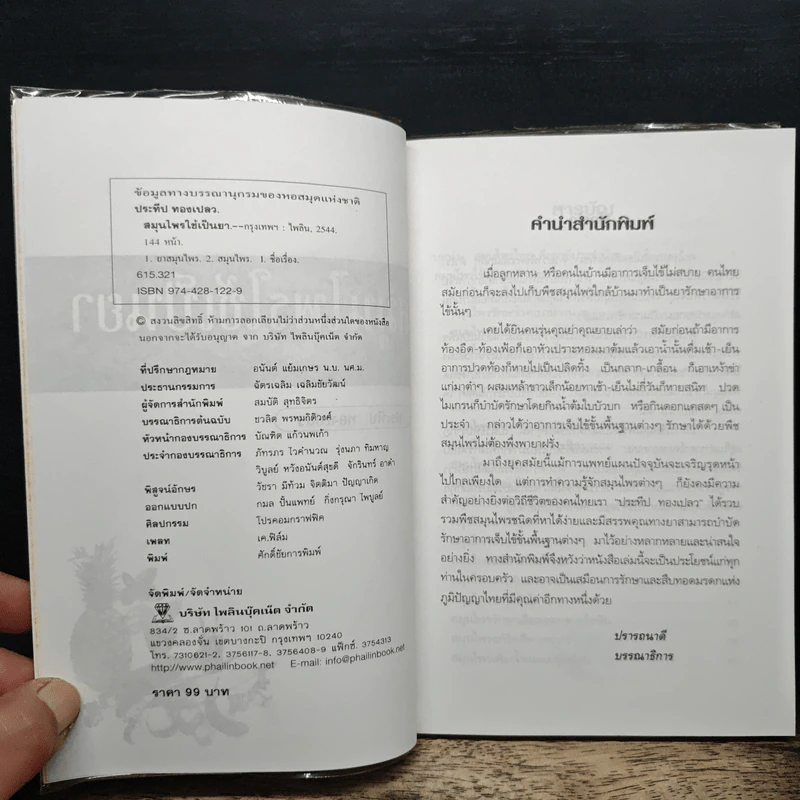 ข้อมูลทางบรรณานุกรมของหอสมุดแห่งชาติ
ประทีป ทองเปลว.
สมุนไพรใช้เป็นยา.--กรุงเทพฯ : ไพลิน, 2544.
144 หน้า.
1. ยาสมุนไพร. 2. สมุนไพร. I. ชื่อเรื่อง.
615.321
ISBN 974-428-122-9
© สงวนลิขสิทธิ์ ห้ามการลอกเลียนไม่ว่าส่วนหนึ่งส่วนใดของหนังสือ
นอกจากจะได้รับอนุญาต จาก บริษัท ไพลินบุ๊คเน็ต จำกัด
ที่ปรึกษากฎหมาย อนันต์ แย้มเกษร น.บ. นศ.ม.
ประธานกรรมการ ฉัตรเฉลิม เฉลิมชัยวัฒน์
ผู้จัดการสำนักพิมพ์ สมบัติ สุทธิจิตร
บรรณาธิการต้นฉบับ ชวลิต พรหมกิติวงศ์
หัวหน้ากองบรรณาธิการ บัณฑิต แก้วนพเก้า
ประจำกองบรรณาธิการ ภัทรภร ไวคำนวณ รุ่งนภา ทิมหาญ
วิบูลย์ หวังอนันต์สุขดี จักรินทร์ อาดำ
พิสูจน์อักษร วัชรา มีท้วม จิตติมา ปัญญาเกิด
ออกแบบปก กมล ปั้นแพทย์ กิ่งกรุณา ไพบูลย์
ศิลปกรรม โปรคอมกราฟฟิค
เพลท เค.ฟิล์ม
พิมพ์ ศักดิ์ชัยการพิมพ์
จัดพิมพ์/จัดจำหน่าย
บริษัท ไพลินบุ๊คเน็ต จำกัด
834/2 ซ.ลาดพร้าว 101 ถ.ลาดพร้าว
แขวงคลองจั่น เขตบางกะปิ กรุงเทพฯ 10240
โทร. 7310621-2, 3756117-8, 3756408-9 แฟ็กซ์. 3754313
http://www.phailinbook.net E-mail: info@phailinbook.net
ราคา 99 บาท
คำนำสำนักพิมพ์
เมื่อลูกหลาน หรือคนในบ้านมีอาการเจ็บไข้ไม่สบาย คนไทย
สมัยก่อนก็จะลงไปเก็บพืชสมุนไพรใกล้บ้านมาทำเป็นยารักษาอาการ
ไข้นั้นๆ
เคยได้ยินคนรุ่นคุณย่าคุณยายเล่าว่า สมัยก่อนถ้ามีอาการ
ท้องอืด-ท้องเฟ้อก็เอาหัวเปราะหอมมาต้มแล้วเอาน้ำนั้นดื่มเช้า-เย็น
อาการปวดท้องก็หายไปเป็นปลิดทิ้ง เป็นกลาก-เกลื้อน ก็เอาเหง้าข่า
แก่มาตำๆ ผสมเหล้าขาวเล็กน้อยทาเช้า-เย็นไม่กี่วันก็หายสนิท ปวด
ไมเกรนก็บำบัดรักษาโดยกินน้ำต้มใบบัวบก หรือกินดอกแคสดๆ เป็น
ประจำ กล่าวได้ว่าอาการเจ็บไข้ขั้นพื้นฐานต่างๆ รักษาได้ด้วยพืช
สมุนไพรไม่ต้องพึ่งพายาฝรั่ง
มาถึงยุคสมัยนี้แม้การแพทย์แผนปัจจุบันจะเจริญรุดหน้า
ไปไกลเพียงใด แต่การทำความรู้จักสมุนไพรต่างๆ ก็ยังคงมีความ
สำคัญอย่างยิ่งต่อวิถีชีวิตของคนไทยเรา "ประทีป ทองเปลว" ได้รวบ
รวมพืชสมุนไพรชนิดที่หาได้ง่ายและมีสรรพคุณทางยาสามารถบำบัด
รักษาอาการเจ็บไข้ขั้นพื้นฐานต่างๆ มาไว้อย่างหลากหลายและน่าสนใจ
อย่างยิ่ง ทางสำนักพิมพ์จึงหวังว่าหนังสือเล่มนี้จะเป็นประโยชน์แก่ทุก
ท่านในครอบครัว และอาจเป็นเสมือนการรักษาและสืบทอดมรดกแห่ง
ภูมิปัญญาไทยที่มีคุณค่าอีกทางหนึ่งด้วย
ปรารถนาดี
บรรณาธิการ